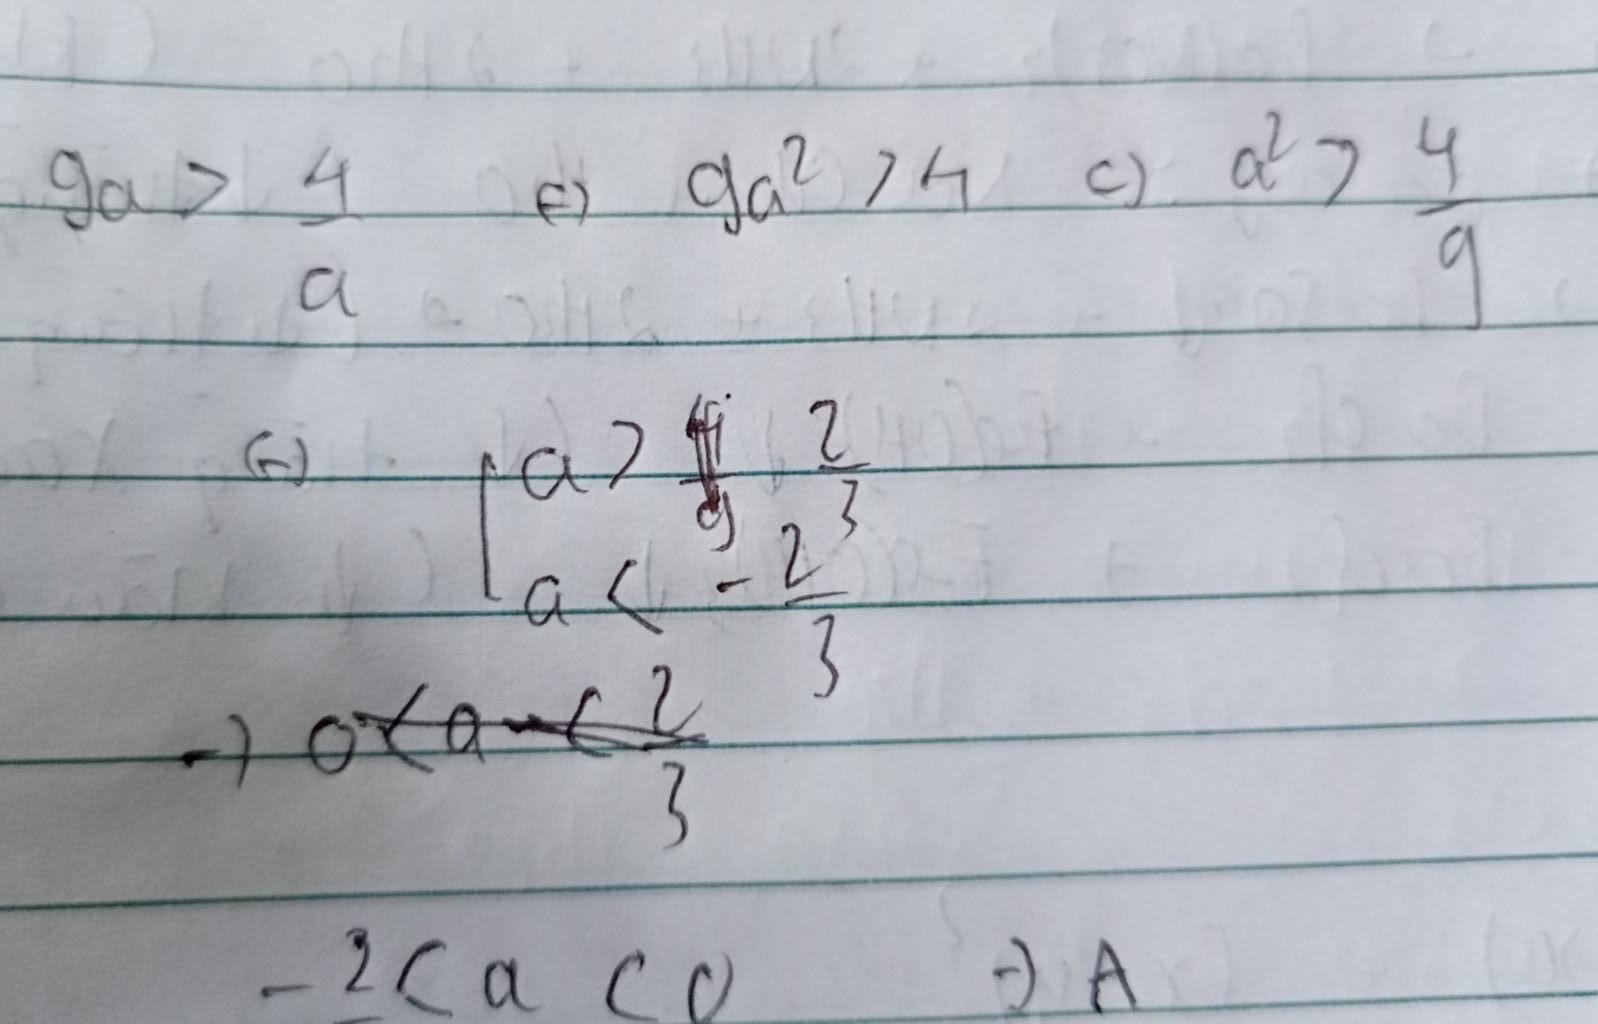 9a > 4/a (=) 9a² > 4 (=) a² > 4/9
(=) [ a > 2/3
a < -2/3
=) 0 < a < 2/3
- 2 < a < 0 =) A